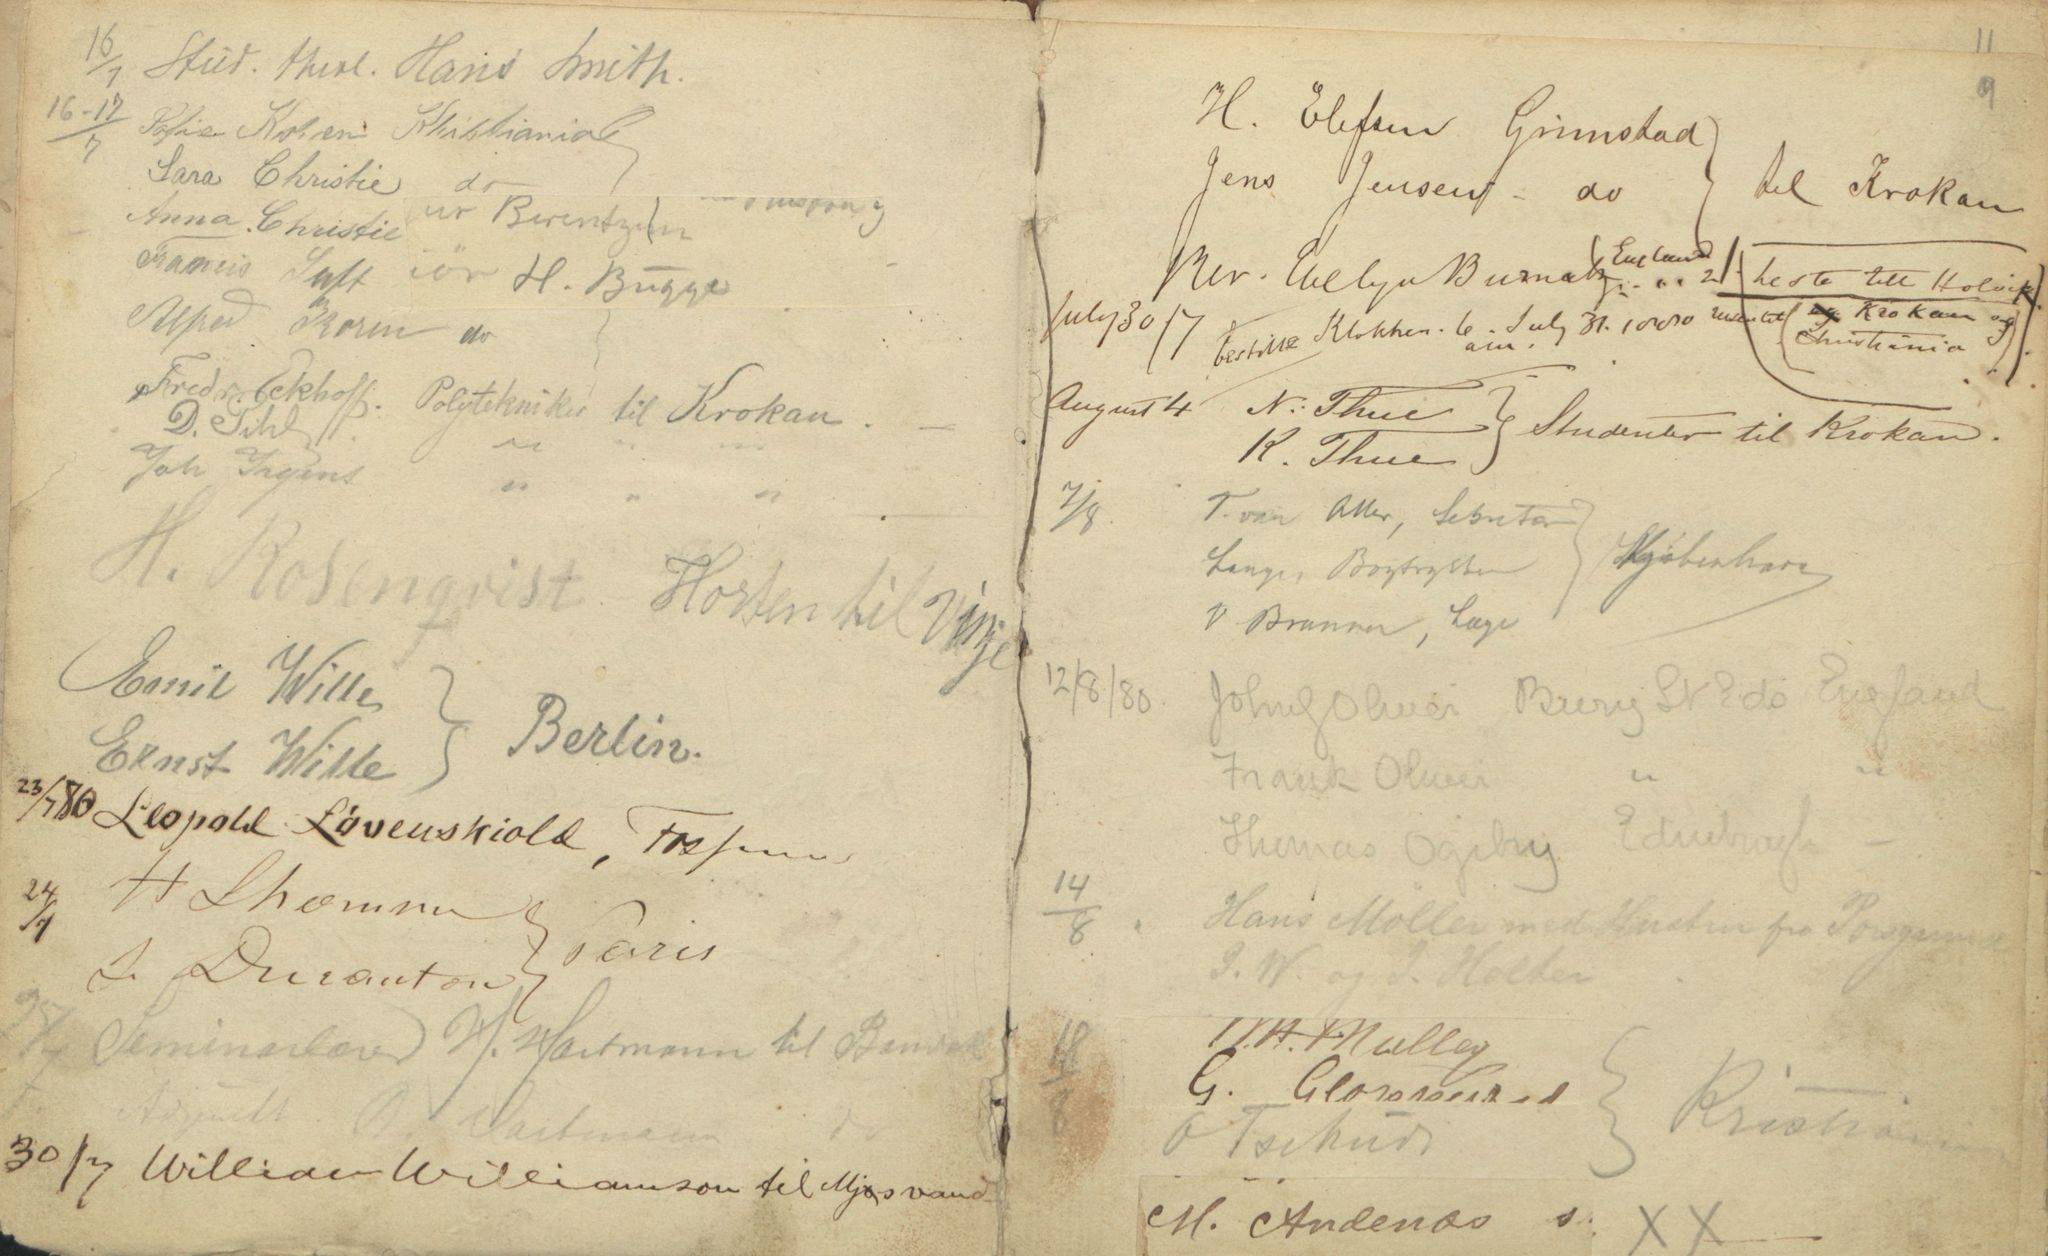 16/7 Stud. theol. Hans Smith.
16-17/7 Kristiania
Sara Christie do
Anna Christie Berentzen
Francis H. Bugge
Alfred do
Fredr. Eckhoff. Polytekniker til Krokan.
D. Pihl " " "
Joh Irgens " " "
H. Rosenqvist Horten til Vinje
Emil Wille
Ernst Wille } Berlin.
23/7 80 Leopold Løvenskiold, Fossum
24/7 H Lhomme
L. Duranton } Paris
Seminarlærer H. Hartmann til Bandak
Adjunkt Hartmann do
30/7 William Williamson til Mjøsvand
11
9
H. Elefsen Grimstad
Jens Jensen do } til Krokan
Rev. Burnaby England 2 heste till Holvik
July 30/7 bestille Klokken 6 am. July 31. 1880 Krokan og Christiania
August 4 N. Thue
K. Thue } Studenter til Krokan.
7/8. T. van Aller, Sekretær
Lange, Bogtrykker } Kjøbenhavn
V Brunner, Læge
12/8/80. John G Oliver Bury St Eds England
Frank Oliver " "
Thomas Ogilvy Edinburgh
14/8 Hans Möller med Hustru fra Porsgrund
I. W. og I. Holter
18/8 Müller
G.
O Tschudi } Kristiania
M. Andenæs s. X X